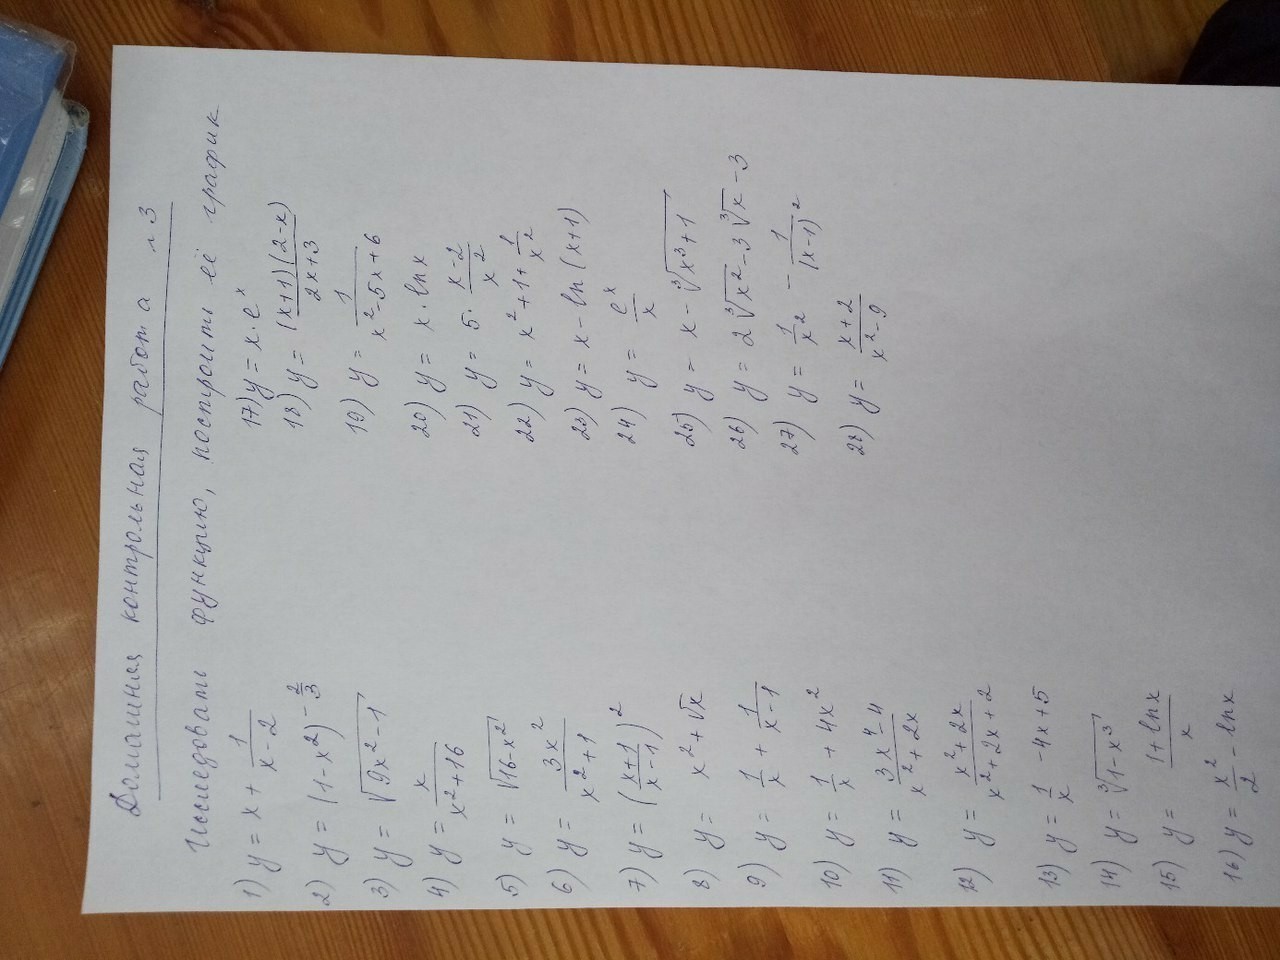 Домашняя контрольная работа №3
Исследовать функцию, построить её график
1) y = x + 1/(x-2)
2) y = (1-x²)^(-2/3)
3) y = √(9x²-1)
4) y = x/(x²+16)
5) y = √(16-x²)
6) y = 3x²/(x²+1)
7) y = ((x+1)/(x-1))²
8) y = x²+√x
9) y = 1/x + 1/(x-1)
10) y = 1/x + 4x²
11) y = (3x⁴-4)/(x²+2x)
12) y = (x²+2x)/(x²+2x+2)
13) y = 1/x - 4x+5
14) y = ∛(1-x³)
15) y = (1+lnx)/x
16) y = x²/2 - lnx
17) y = x·eˣ
18) y = (x+1)(2-x)/(2x+3)
19) y = 1/(x²-5x+6)
20) y = x·lnx
21) y = 5·(x-2)/x²
22) y = x²+1+1/x²
23) y = x-ln(x+1)
24) y = eˣ/x
25) y = x-∛(x³+1)
26) y = 2∛x²-3∛x-3
27) y = 1/x² - 1/(x-1)²
28) y = (x+2)/(x²-9)